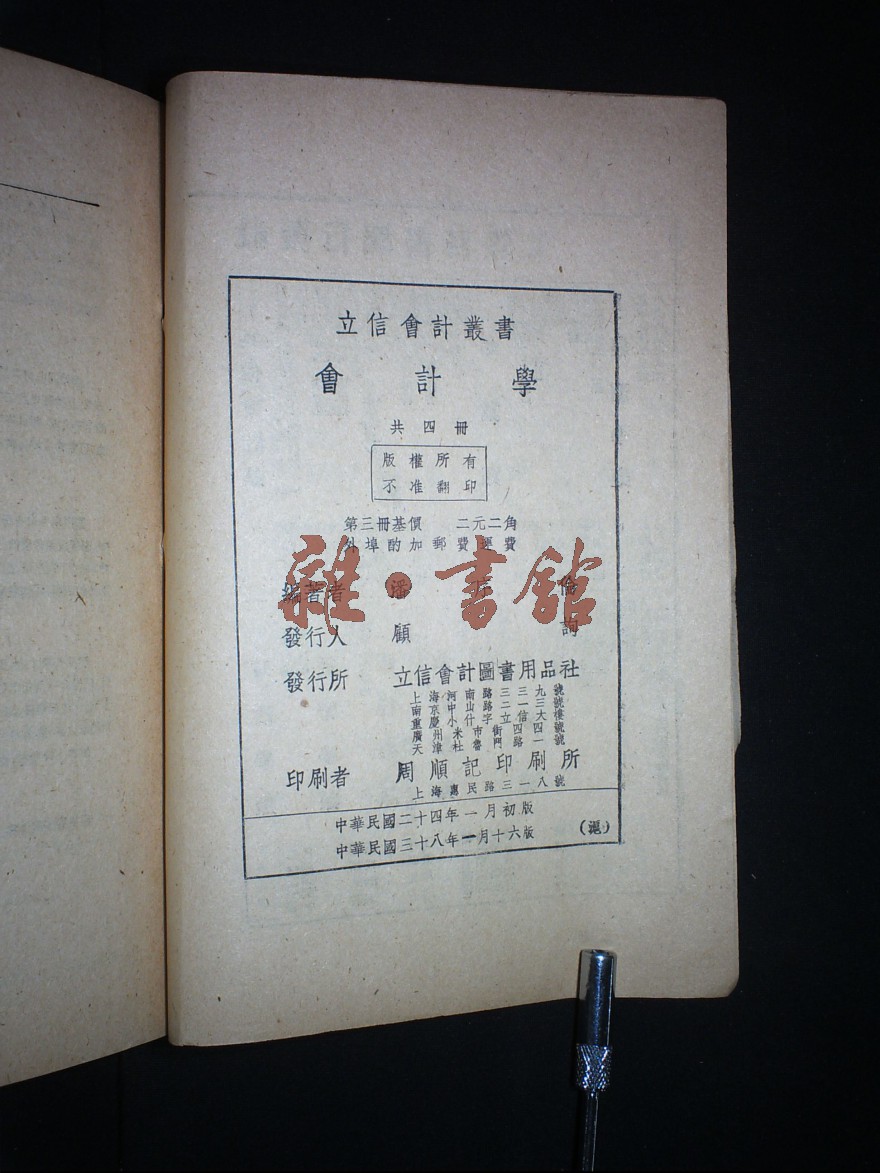 立信會計叢書
會計學
共四冊
版權所有
不准翻印
第三冊基價 二元二角
外埠酌加郵費運費
編著者 潘序倫
發行人 顧詢
發行所 立信會計圖書用品社
上海河南路三三九號
南京中山路二一三號
重慶小什字立信大樓
廣州米市街四四號
天津杜魯門路一號
印刷者 周順記印刷所
上海惠民路三一八號
中華民國二十四年一月初版
中華民國三十八年一月十六版
(滬)
雜·書館